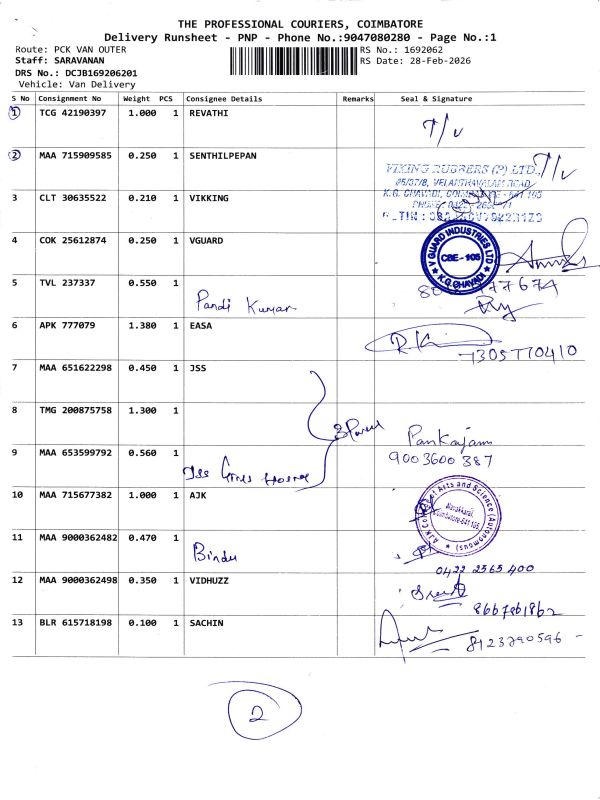 THE PROFESSIONAL COURIERS, COIMBATORE
Delivery Runsheet - PNP - Phone No.:9047080280 - Page No.:1
Route: PCK VAN OUTER
RS No.: 1692062
Staff: SARAVANAN
RS Date: 28-Feb-2026
DRS No.: DCJB169206201
Vehicle: Van Delivery
S No Consignment No Weight PCS Consignee Details Remarks Seal & Signature
1 TCG 42190397 1.000 1 REVATHI
T/v
2 MAA 715909585 0.250 1 SENTHILPEPAN
T/v
VIKING RUBBERS (P) LTD.,
3 CLT 30635522 0.210 1 VIKKING
4 COK 25612874 0.250 1 VGUARD
V GUARD INDUSTRIES LTD
CBE - 105
K.G. CHAVADI
5 TVL 237337 0.550 1
Pandi Kumar
6 APK 777079 1.380 1 EASA
7305770410
7 MAA 651622298 0.450 1 JSS
8 TMG 200875758 1.300 1
Pankajam
9003600387
9 MAA 653599792 0.560 1
10 MAA 715677382 1.000 1 AJK
Arts and Science (Autonomous)
11 MAA 9000362482 0.470 1
Bindu
0422 2565 400
12 MAA 9000362498 0.350 1 VIDHUZZ
13 BLR 615718198 0.100 1 SACHIN
8123790596
2